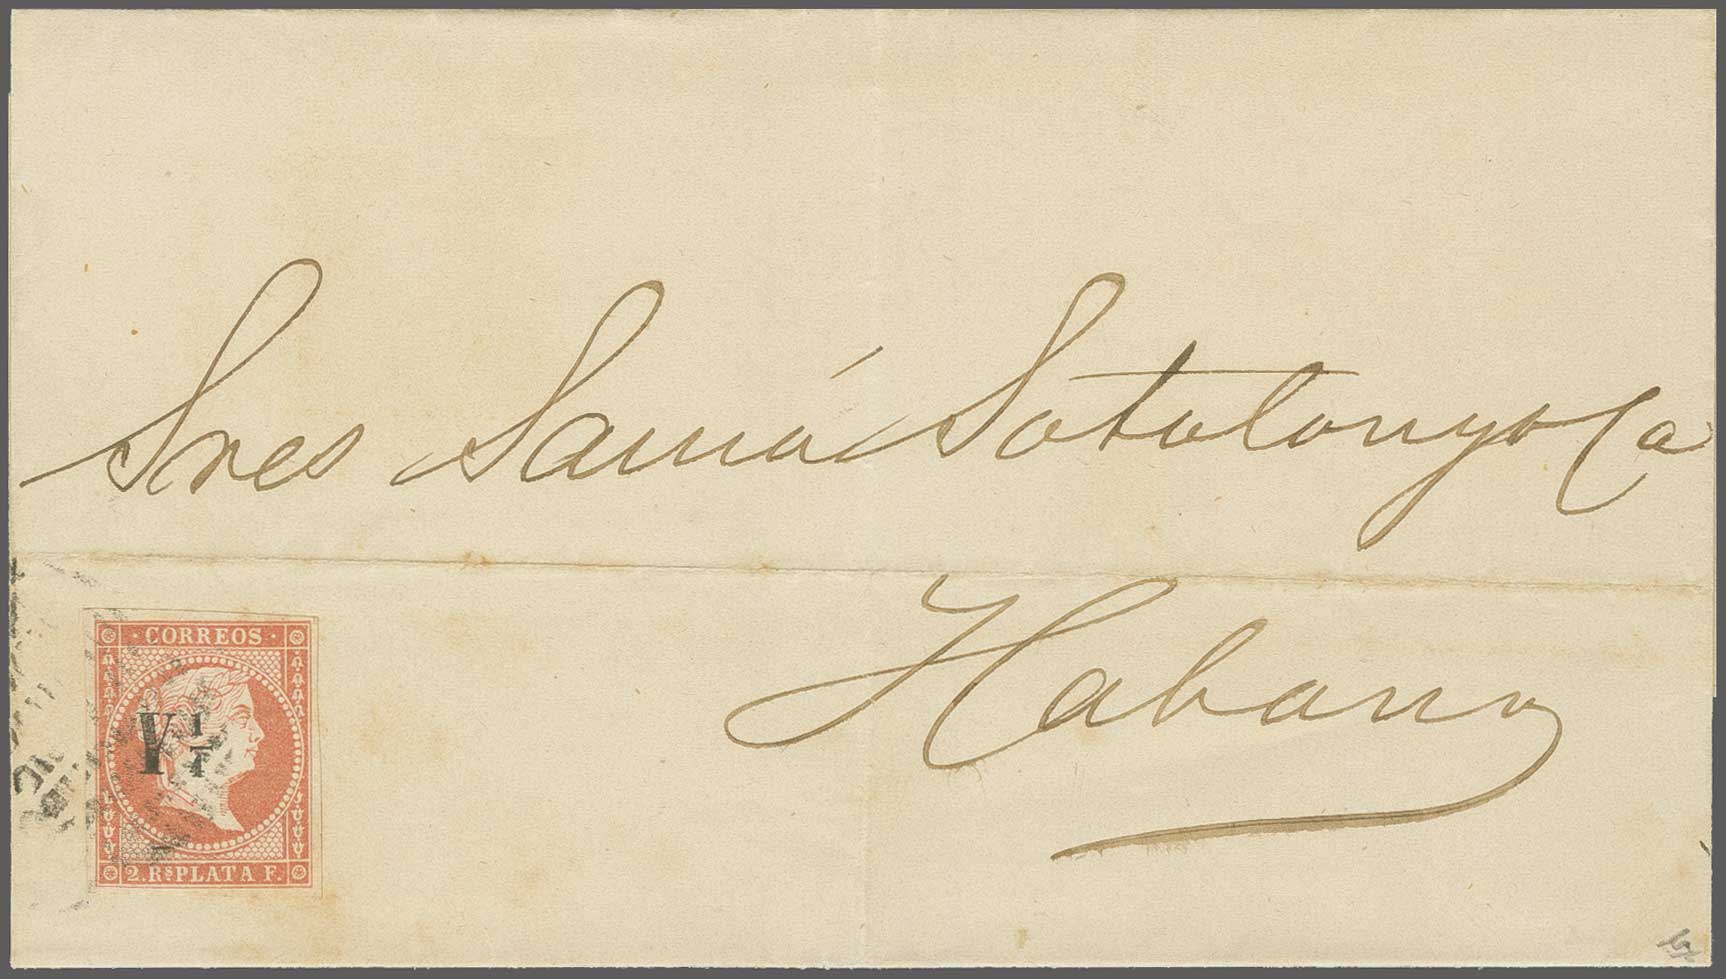 Sres Samá Sotolongo y Ca
Habana
CORREOS
Y 1/4
2. Rs PLATA F.